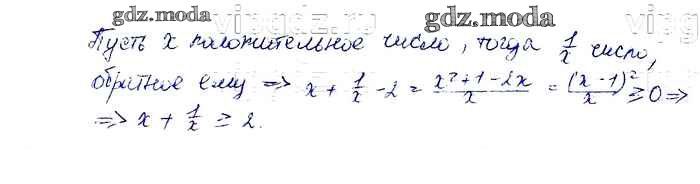 gdz.moda vipgdz gdz.moda vipg
Пусть x положительное число, тогда 1/x число,
обратное ему => x + 1/x - 2 = (x²+1-2x)/x = (x-1)²/x ≥ 0 =>
=> x + 1/x ≥ 2.